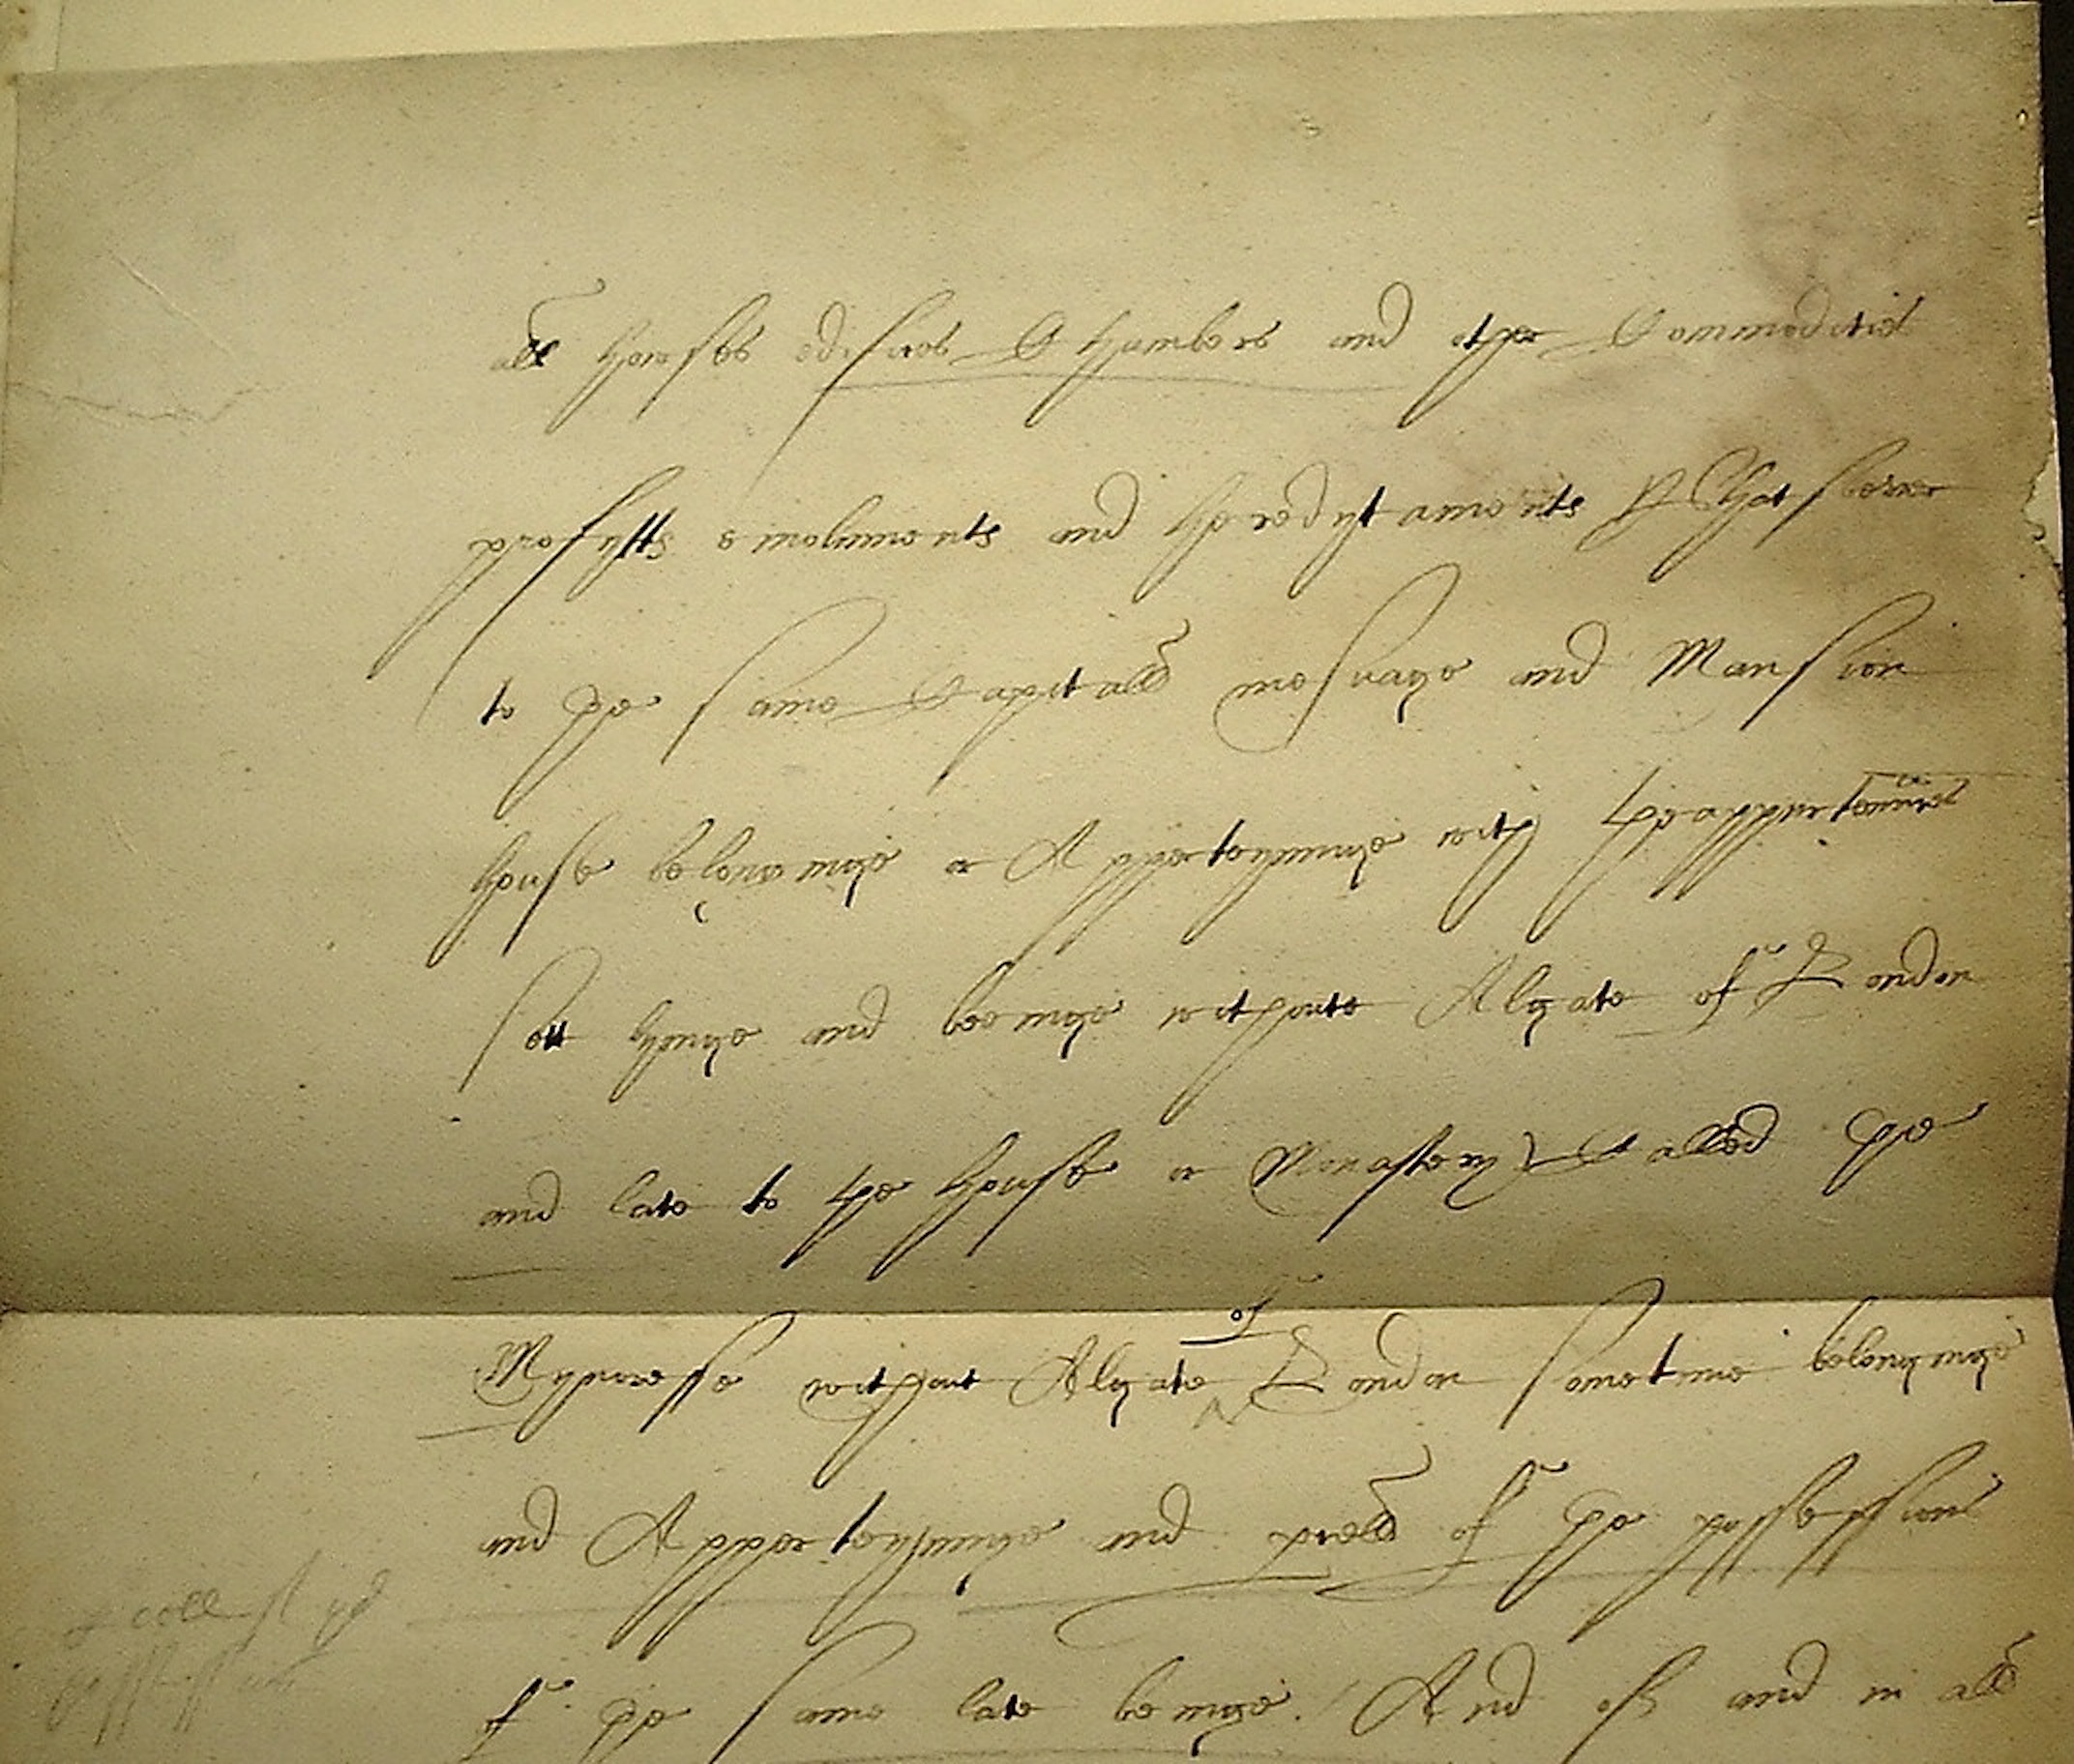 all houses edifices Chambers and other Commodities
profytts emoluments and heredytaments Whatsoever
to the same Capitall mesuage and Mansion
house belonginge or Apperteyninge with theappurtenances
sett lyinge and beeinge withoute Algate of London
and late to the house or Monastery Called the
Mynoresse without Algate of London sometime belonginge
and Apperteyninge and parcell of the possessions
of the same late beinge. And of and in all